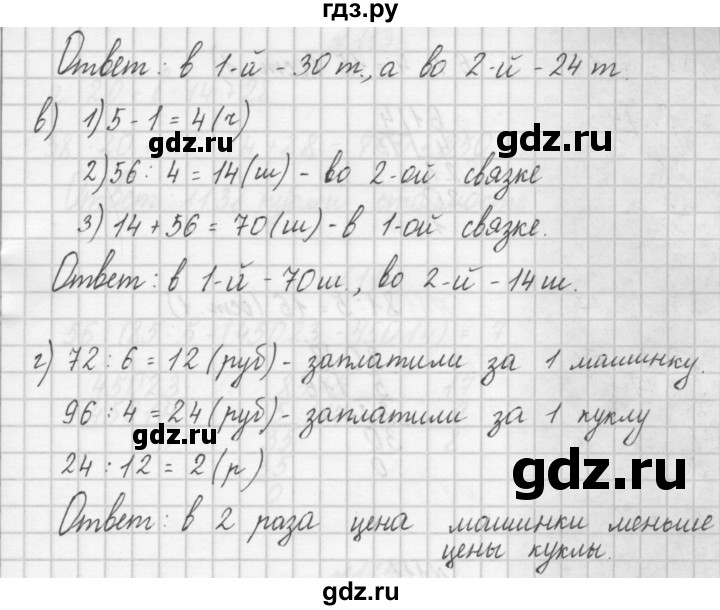 гдз.ру
Ответ: в 1-й - 30 т., а во 2-й - 24 т.
в) 1) 5 - 1 = 4 (ч)
gdz.ru
gdz.ru
2) 56 : 4 = 14 (ш) - во 2-ой связке
3) 14 + 56 = 70 (ш) - в 1-ой связке.
Ответ: в 1-й - 70 ш., во 2-й - 14 ш.
г) 72 : 6 = 12 (руб) - заплатили за 1 машинку.
96 : 4 = 24 (руб) - заплатили за 1 куклу
gdz.ru
24 : 12 = 2 (р)
gdz.ru
Ответ: в 2 раза цена машинки меньше
цены куклы.
gdz.ru